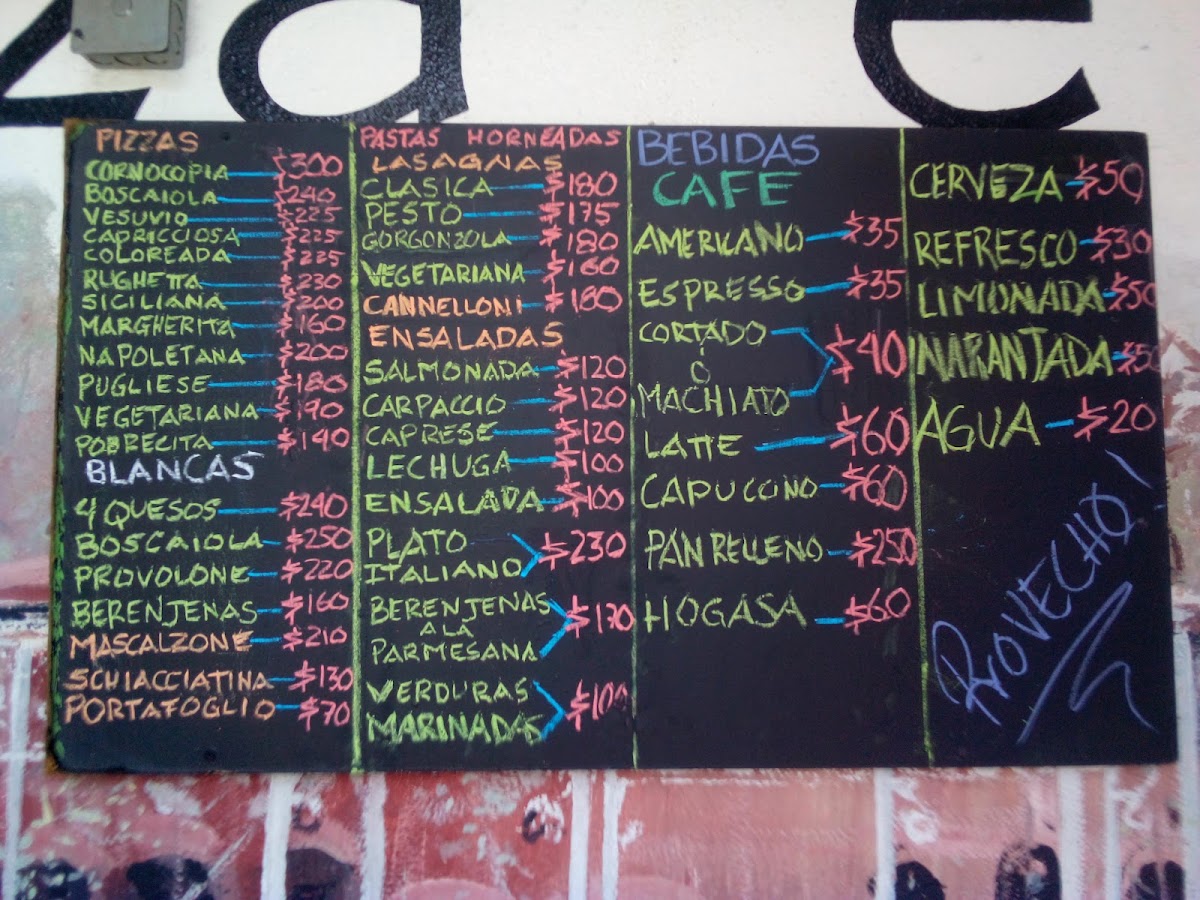 za e
PIZZAS
CORNOCOPIA $300
BOSCAIOLA $240
VESUVIO $225
CAPRICCIOSA $225
COLOREADA $225
RUGHETTA $230
SICILIANA $200
MARGHERITA $160
NAPOLETANA $200
PUGLIESE $180
VEGETARIANA $190
POBRECITA $140
BLANCAS
4 QUESOS $240
BOSCAIOLA $250
PROVOLONE $220
BERENJENAS $160
MASCALZONE $210
SCHIACCIATINA $130
PORTAFOGLIO $70
PASTAS HORNEADAS
LASAGNAS
CLASICA $180
PESTO $175
GORGONZOLA $180
VEGETARIANA $160
CANNELLONI $180
ENSALADAS
SALMONADA $120
CARPACCIO $120
CAPRESE $120
LECHUGA $100
ENSALADA $100
PLATO
ITALIANO $230
BERENJENAS
A LA $170
PARMESANA
VERDURAS
MARINADAS $100
BEBIDAS
CAFE
AMERICANO $35
ESPRESSO $35
CORTADO
Ó $40
MACHIATO
LATTE $60
CAPUCCINO $60
PAN RELLENO $250
HOGASA $60
CERVEZA $50
REFRESCO $30
LIMONADA $50
NARANJADA $50
AGUA $20
PROVECHO!